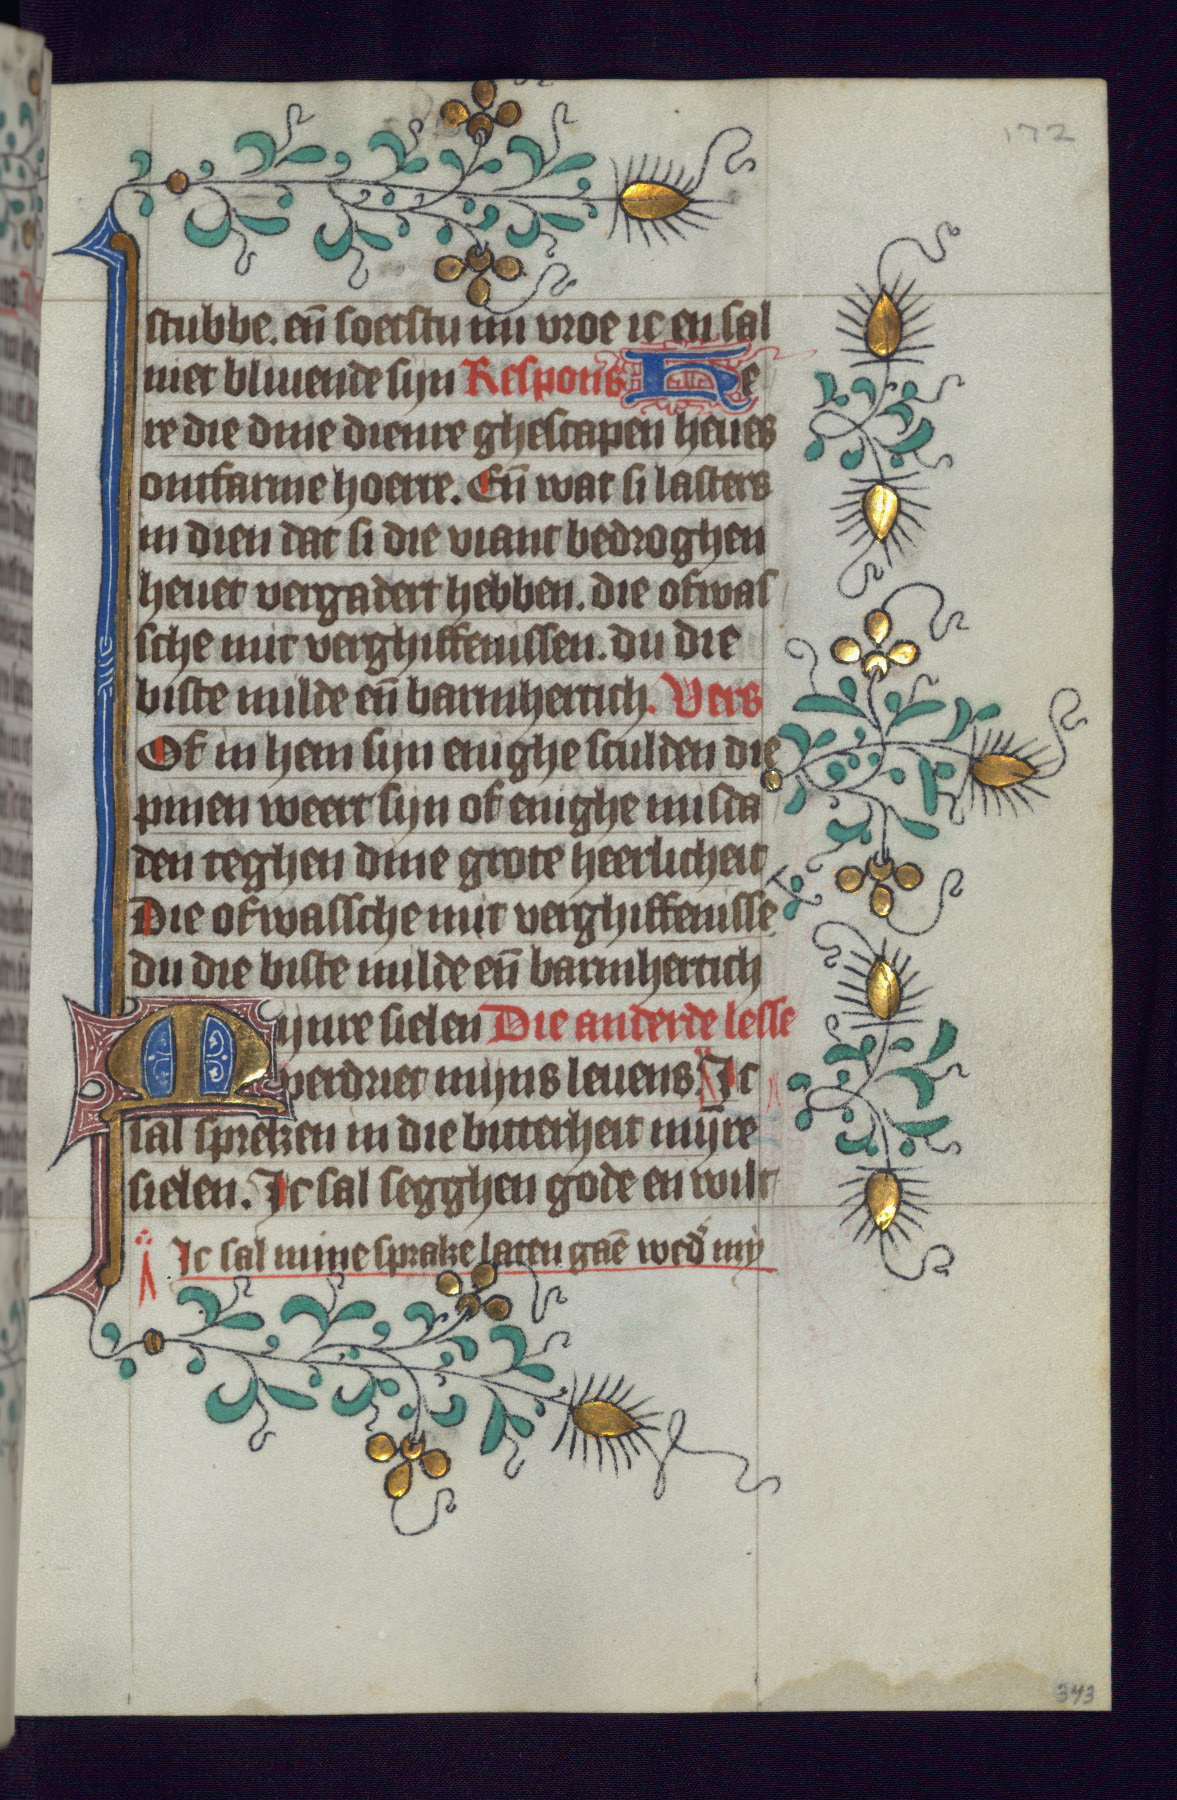 172
stubbe. eñ soecstu mi vroe ic en sal
niet bliuende sijn Respons He
re die dine dienre ghescapen heues
ontfarme hoerre. Eñ wat si lasters
in dien dat si die viant bedroghen
heuet vergadert hebben. die ofwas
sche mit verghiffenissen. du die
biste milde eñ barmhertich. Vers
Of in hem sijn enighe sculden die
pinen weert sijn of enighe misda
den teghen dine grote heerlicheit
Die ofwassche mit verghiffenisse
du die biste milde eñ barmhertich
Mynre sielen Die anderde lesse
verdriet mijns leuens. Ic
sal spreken in die bitterheit mỹre
sielen. Ic sal segghen gode en wilt
Ic sal mine sprake laten gaē wed' mÿ
343